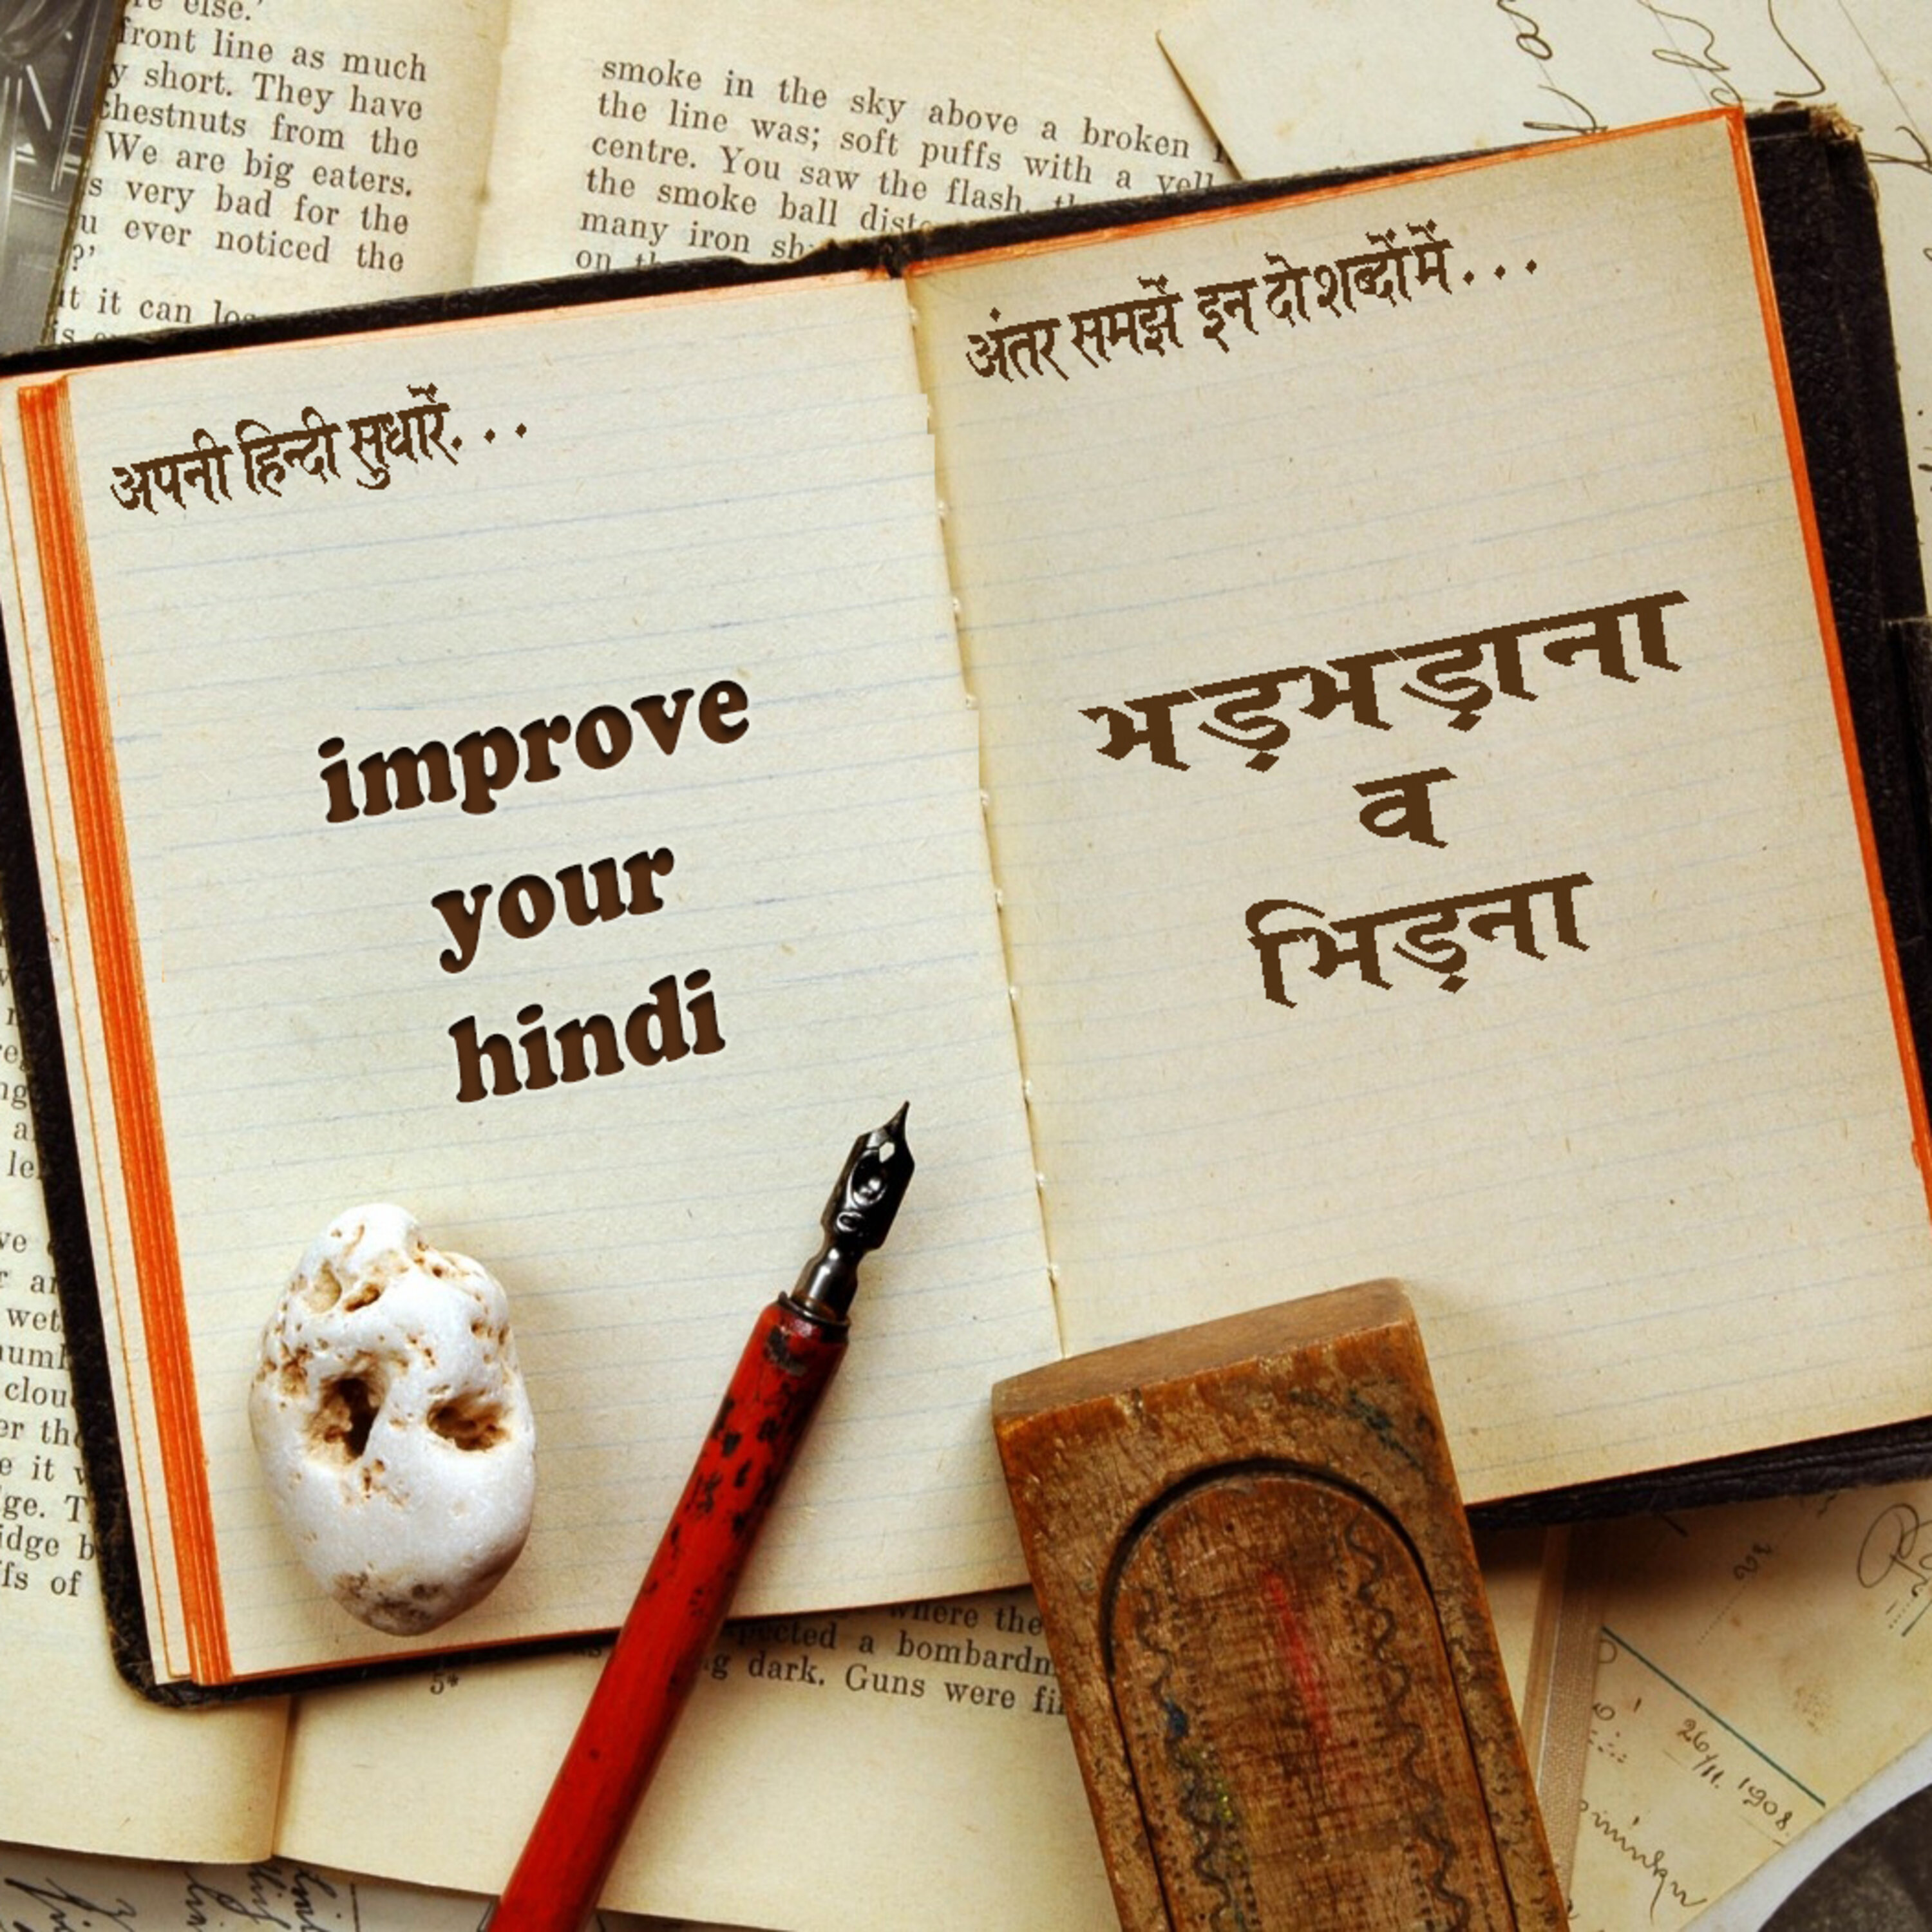 re else.'
front line as much
y short. They have
chestnuts from the
We are big eaters.
s very bad for the
u ever noticed the
?'
it it can
smoke in the sky above a broken
the line was; soft puffs with a
centre. You saw the flash,
the smoke ball
many iron
on
अपनी हिन्दी सुधारें...
improve
your
hindi
अंतर समझें इन दो शब्दों में...
भड़भड़ाना
व
भिड़ना
where the
a bombardm
dark. Guns were
5*
wet
clou
it
idge
of
26/11. 1908.